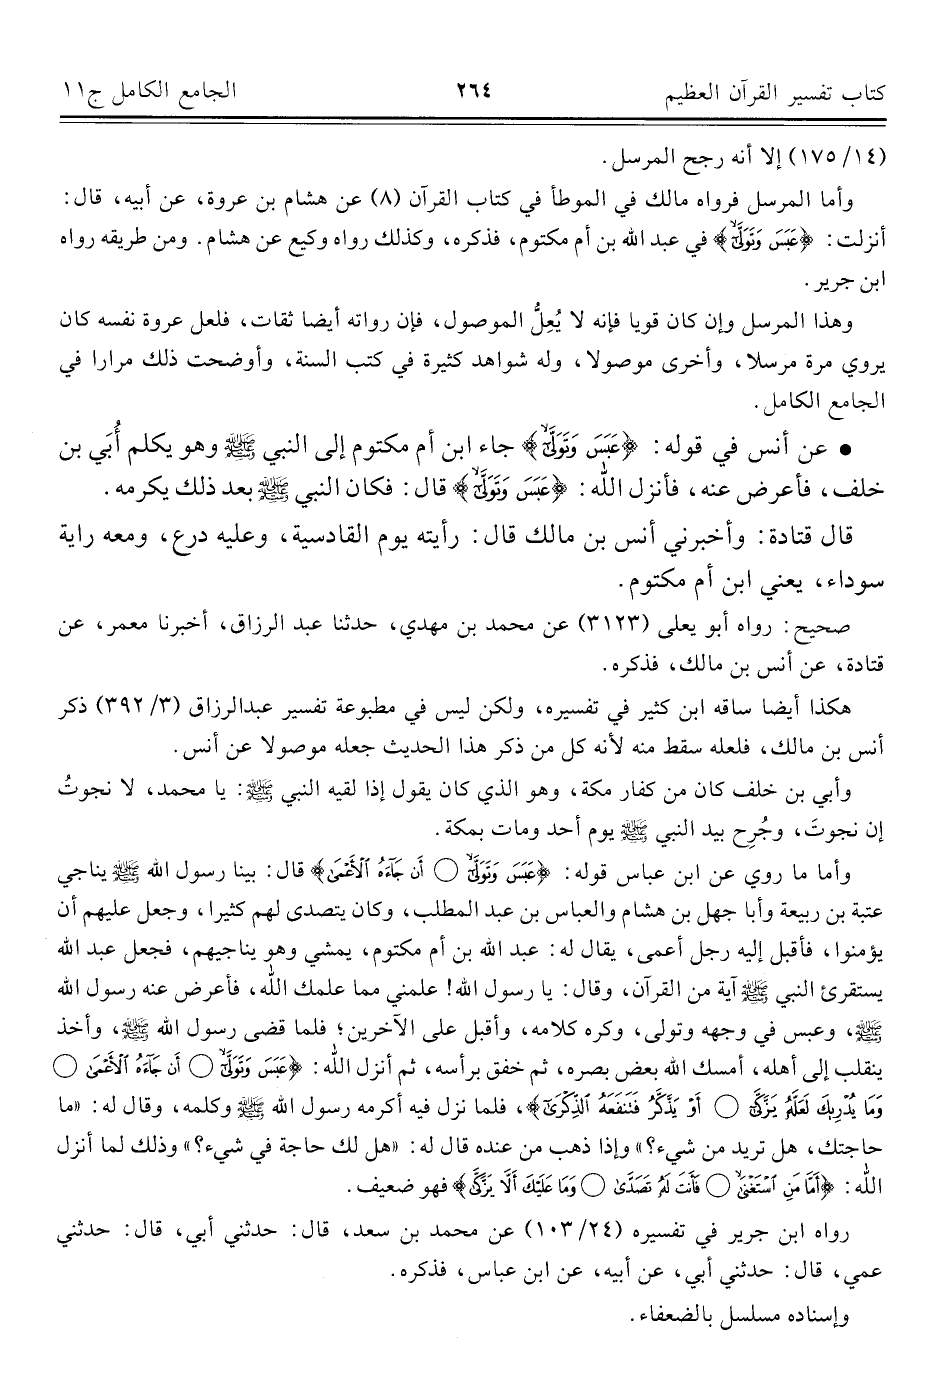 كتاب تفسير القرآن العظيم ٢٦٤ الجامع الكامل ج١١
(١٤/ ١٧٥) إلا أنه رجح المرسل.
وأما المرسل فرواه مالك في الموطأ في كتاب القرآن (٨) عن هشام بن عروة، عن أبيه، قال:
أنزلت: ﴿عَبَسَ وَتَوَلَّىٰٓ﴾ في عبد الله بن أم مكتوم، فذكره، وكذلك رواه وكيع عن هشام. ومن طريقه رواه
ابن جرير.
وهذا المرسل وإن كان قويا فإنه لا يُعِلُّ الموصول، فإن رواته أيضا ثقات، فلعل عروة نفسه كان
يروي مرة مرسلا، وأخرى موصولا، وله شواهد كثيرة في كتب السنة، وأوضحت ذلك مرارا في
الجامع الكامل.
• عن أنس في قوله: ﴿عَبَسَ وَتَوَلَّىٰٓ﴾ جاء ابن أم مكتوم إلى النبي ﷺ وهو يكلم أُبَي بن
خلف، فأعرض عنه، فأنزل الله: ﴿عَبَسَ وَتَوَلَّىٰٓ﴾ قال: فكان النبي ﷺ بعد ذلك يكرمه.
قال قتادة: وأخبرني أنس بن مالك قال: رأيته يوم القادسية، وعليه درع، ومعه راية
سوداء، يعني ابن أم مكتوم.
صحيح: رواه أبو يعلى (٣١٢٣) عن محمد بن مهدي، حدثنا عبد الرزاق، أخبرنا معمر، عن
قتادة، عن أنس بن مالك، فذكره.
هكذا أيضا ساقه ابن كثير في تفسيره، ولكن ليس في مطبوعة تفسير عبدالرزاق (٣/ ٣٩٢) ذكر
أنس بن مالك، فلعله سقط منه لأنه كل من ذكر هذا الحديث جعله موصولا عن أنس.
وأبي بن خلف كان من كفار مكة، وهو الذي كان يقول إذا لقيه النبي ﷺ: يا محمد، لا نجوتُ
إن نجوتَ، وجُرِح بيد النبي ﷺ يوم أحد ومات بمكة.
وأما ما روي عن ابن عباس قوله: ﴿عَبَسَ وَتَوَلَّىٰٓ ۝ أَن جَآءَهُ ٱلۡأَعۡمَىٰ﴾ قال: بينا رسول الله ﷺ يناجي
عتبة بن ربيعة وأبا جهل بن هشام والعباس بن عبد المطلب، وكان يتصدى لهم كثيرا، وجعل عليهم أن
يؤمنوا، فأقبل إليه رجل أعمى، يقال له: عبد الله بن أم مكتوم، يمشي وهو يناجيهم، فجعل عبد الله
يستقرئ النبي ﷺ آية من القرآن، وقال: يا رسول الله! علمني مما علمك الله، فأعرض عنه رسول الله
ﷺ، وعبس في وجهه وتولى، وكره كلامه، وأقبل على الآخرين؛ فلما قضى رسول الله ﷺ، وأخذ
ينقلب إلى أهله، أمسك الله بعض بصره، ثم خفق برأسه، ثم أنزل الله: ﴿عَبَسَ وَتَوَلَّىٰٓ ۝ أَن جَآءَهُ ٱلۡأَعۡمَىٰ ۝
وَمَا يُدۡرِيكَ لَعَلَّهُۥ يَزَّكَّىٰٓ ۝ أَوۡ يَذَّكَّرُ فَتَنفَعَهُ ٱلذِّكۡرَىٰٓ﴾، فلما نزل فيه أكرمه رسول الله ﷺ وكلمه، وقال له: «ما
حاجتك، هل تريد من شيء؟» وإذا ذهب من عنده قال له: «هل لك حاجة في شيء؟» وذلك لما أنزل
الله: ﴿أَمَّا مَنِ ٱسۡتَغۡنَىٰ ۝ فَأَنتَ لَهُۥ تَصَدَّىٰ ۝ وَمَا عَلَيۡكَ أَلَّا يَزَّكَّىٰ﴾ فهو ضعيف.
رواه ابن جرير في تفسيره (٢٤/ ١٠٣) عن محمد بن سعد، قال: حدثني أبي، قال: حدثني
عمي، قال: حدثني أبي، عن أبيه، عن ابن عباس، فذكره.
وإسناده مسلسل بالضعفاء.